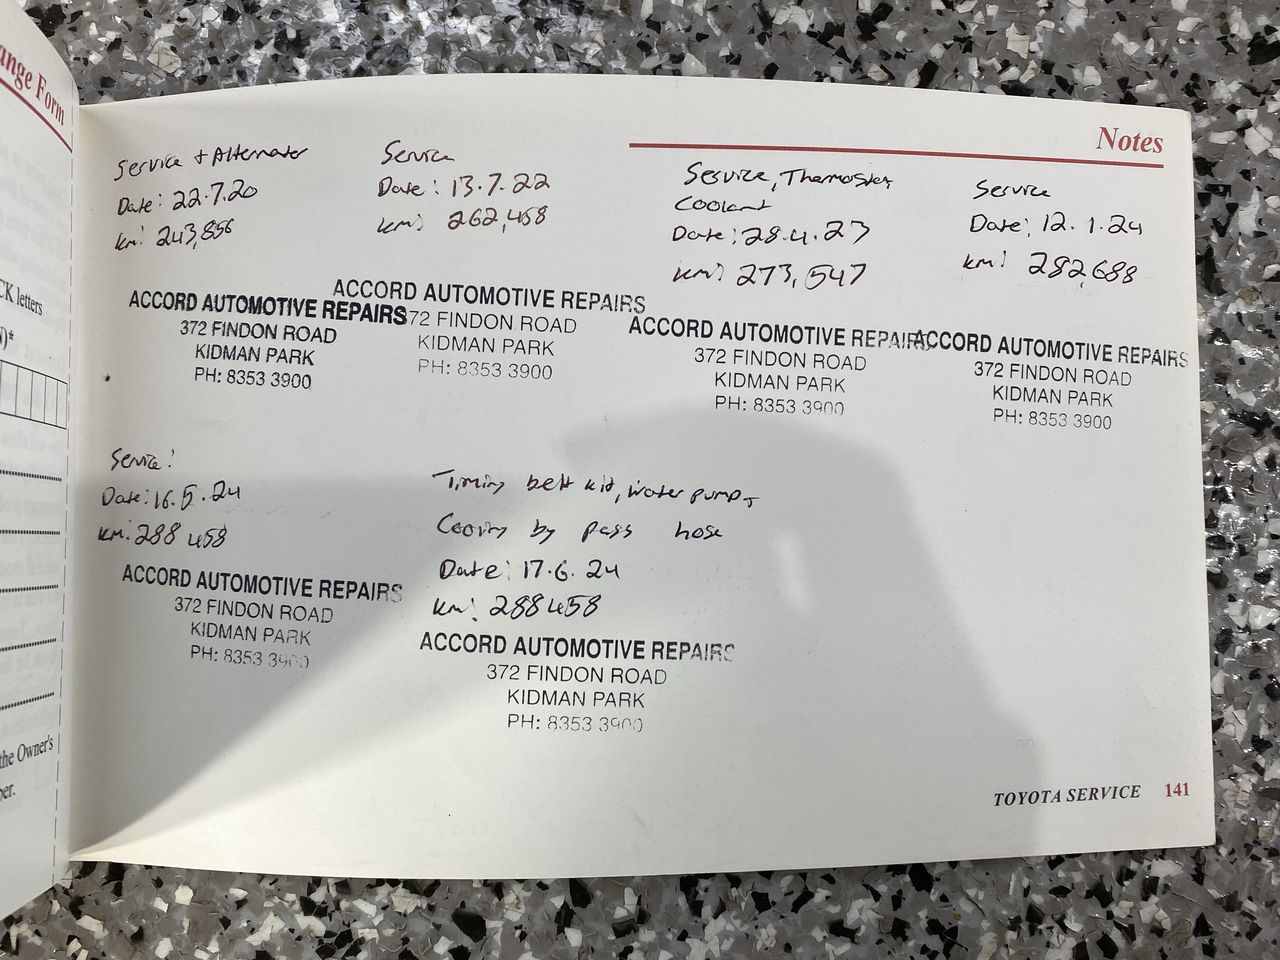 ange Form
CK letters
)*
the Owner's
ber.
Notes
Service + Alternator
Date: 22.7.20
Km: 243,856
ACCORD AUTOMOTIVE REPAIRS
372 FINDON ROAD
KIDMAN PARK
PH: 8353 3900
Service
Date: 13.7.22
Km: 262,458
ACCORD AUTOMOTIVE REPAIRS
372 FINDON ROAD
KIDMAN PARK
PH: 8353 3900
Service, Thermostat,
Coolant
Date: 28.4.23
Km: 273,547
ACCORD AUTOMOTIVE REPAIRS
372 FINDON ROAD
KIDMAN PARK
PH: 8353 3900
Service
Date: 12.1.24
Km: 282,688
ACCORD AUTOMOTIVE REPAIRS
372 FINDON ROAD
KIDMAN PARK
PH: 8353 3900
Service:
Date: 16.5.24
Km: 288 458
ACCORD AUTOMOTIVE REPAIRS
372 FINDON ROAD
KIDMAN PARK
PH: 8353 3900
Timing belt kit, water pump,
Cooling by pass hose
Date: 17.6.24
Km: 288458
ACCORD AUTOMOTIVE REPAIRS
372 FINDON ROAD
KIDMAN PARK
PH: 8353 3900
TOYOTA SERVICE 141